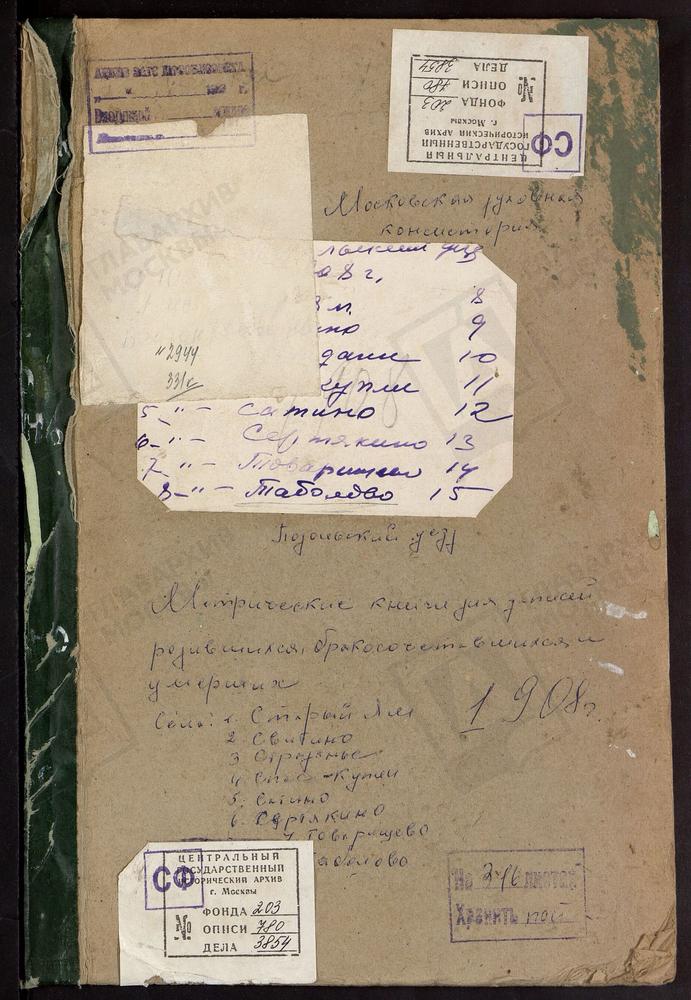 АРХИВ ЗАГС
г.
ЦЕНТРАЛЬНЫЙ
ГОСУДАРСТВЕННЫЙ
ИСТОРИЧЕСКИЙ АРХИВ
г. Москвы
СФ
№
ФОНДА 203
ОПИСИ 780
ДЕЛА 3854
Московская духовная
консистория
8 г.
8
9
10
купли 11
5 -"- Сатино 12
6 -"- Сертякино 13
7 -"- Товарищево 14
8 -"- Таболово 15
№2944
331с
Подольский уезд
Метрические книги для записей
родившихся, бракосочетавшихся и
умерших
1908 г.
Села: 1. Старый Ям
2. Свитино
3
4. Спас-Купли
5. Сатино
6. Сертякино
7. Товарищево
аболово
ЦЕНТРАЛЬНЫЙ
ГОСУДАРСТВЕННЫЙ
ИСТОРИЧЕСКИЙ АРХИВ
г. Москвы
СФ
№
ФОНДА 203
ОПИСИ 780
ДЕЛА 3854
На 376 листах
Хранить пост
ГЛАВАРХИВ
МОСКВЫ